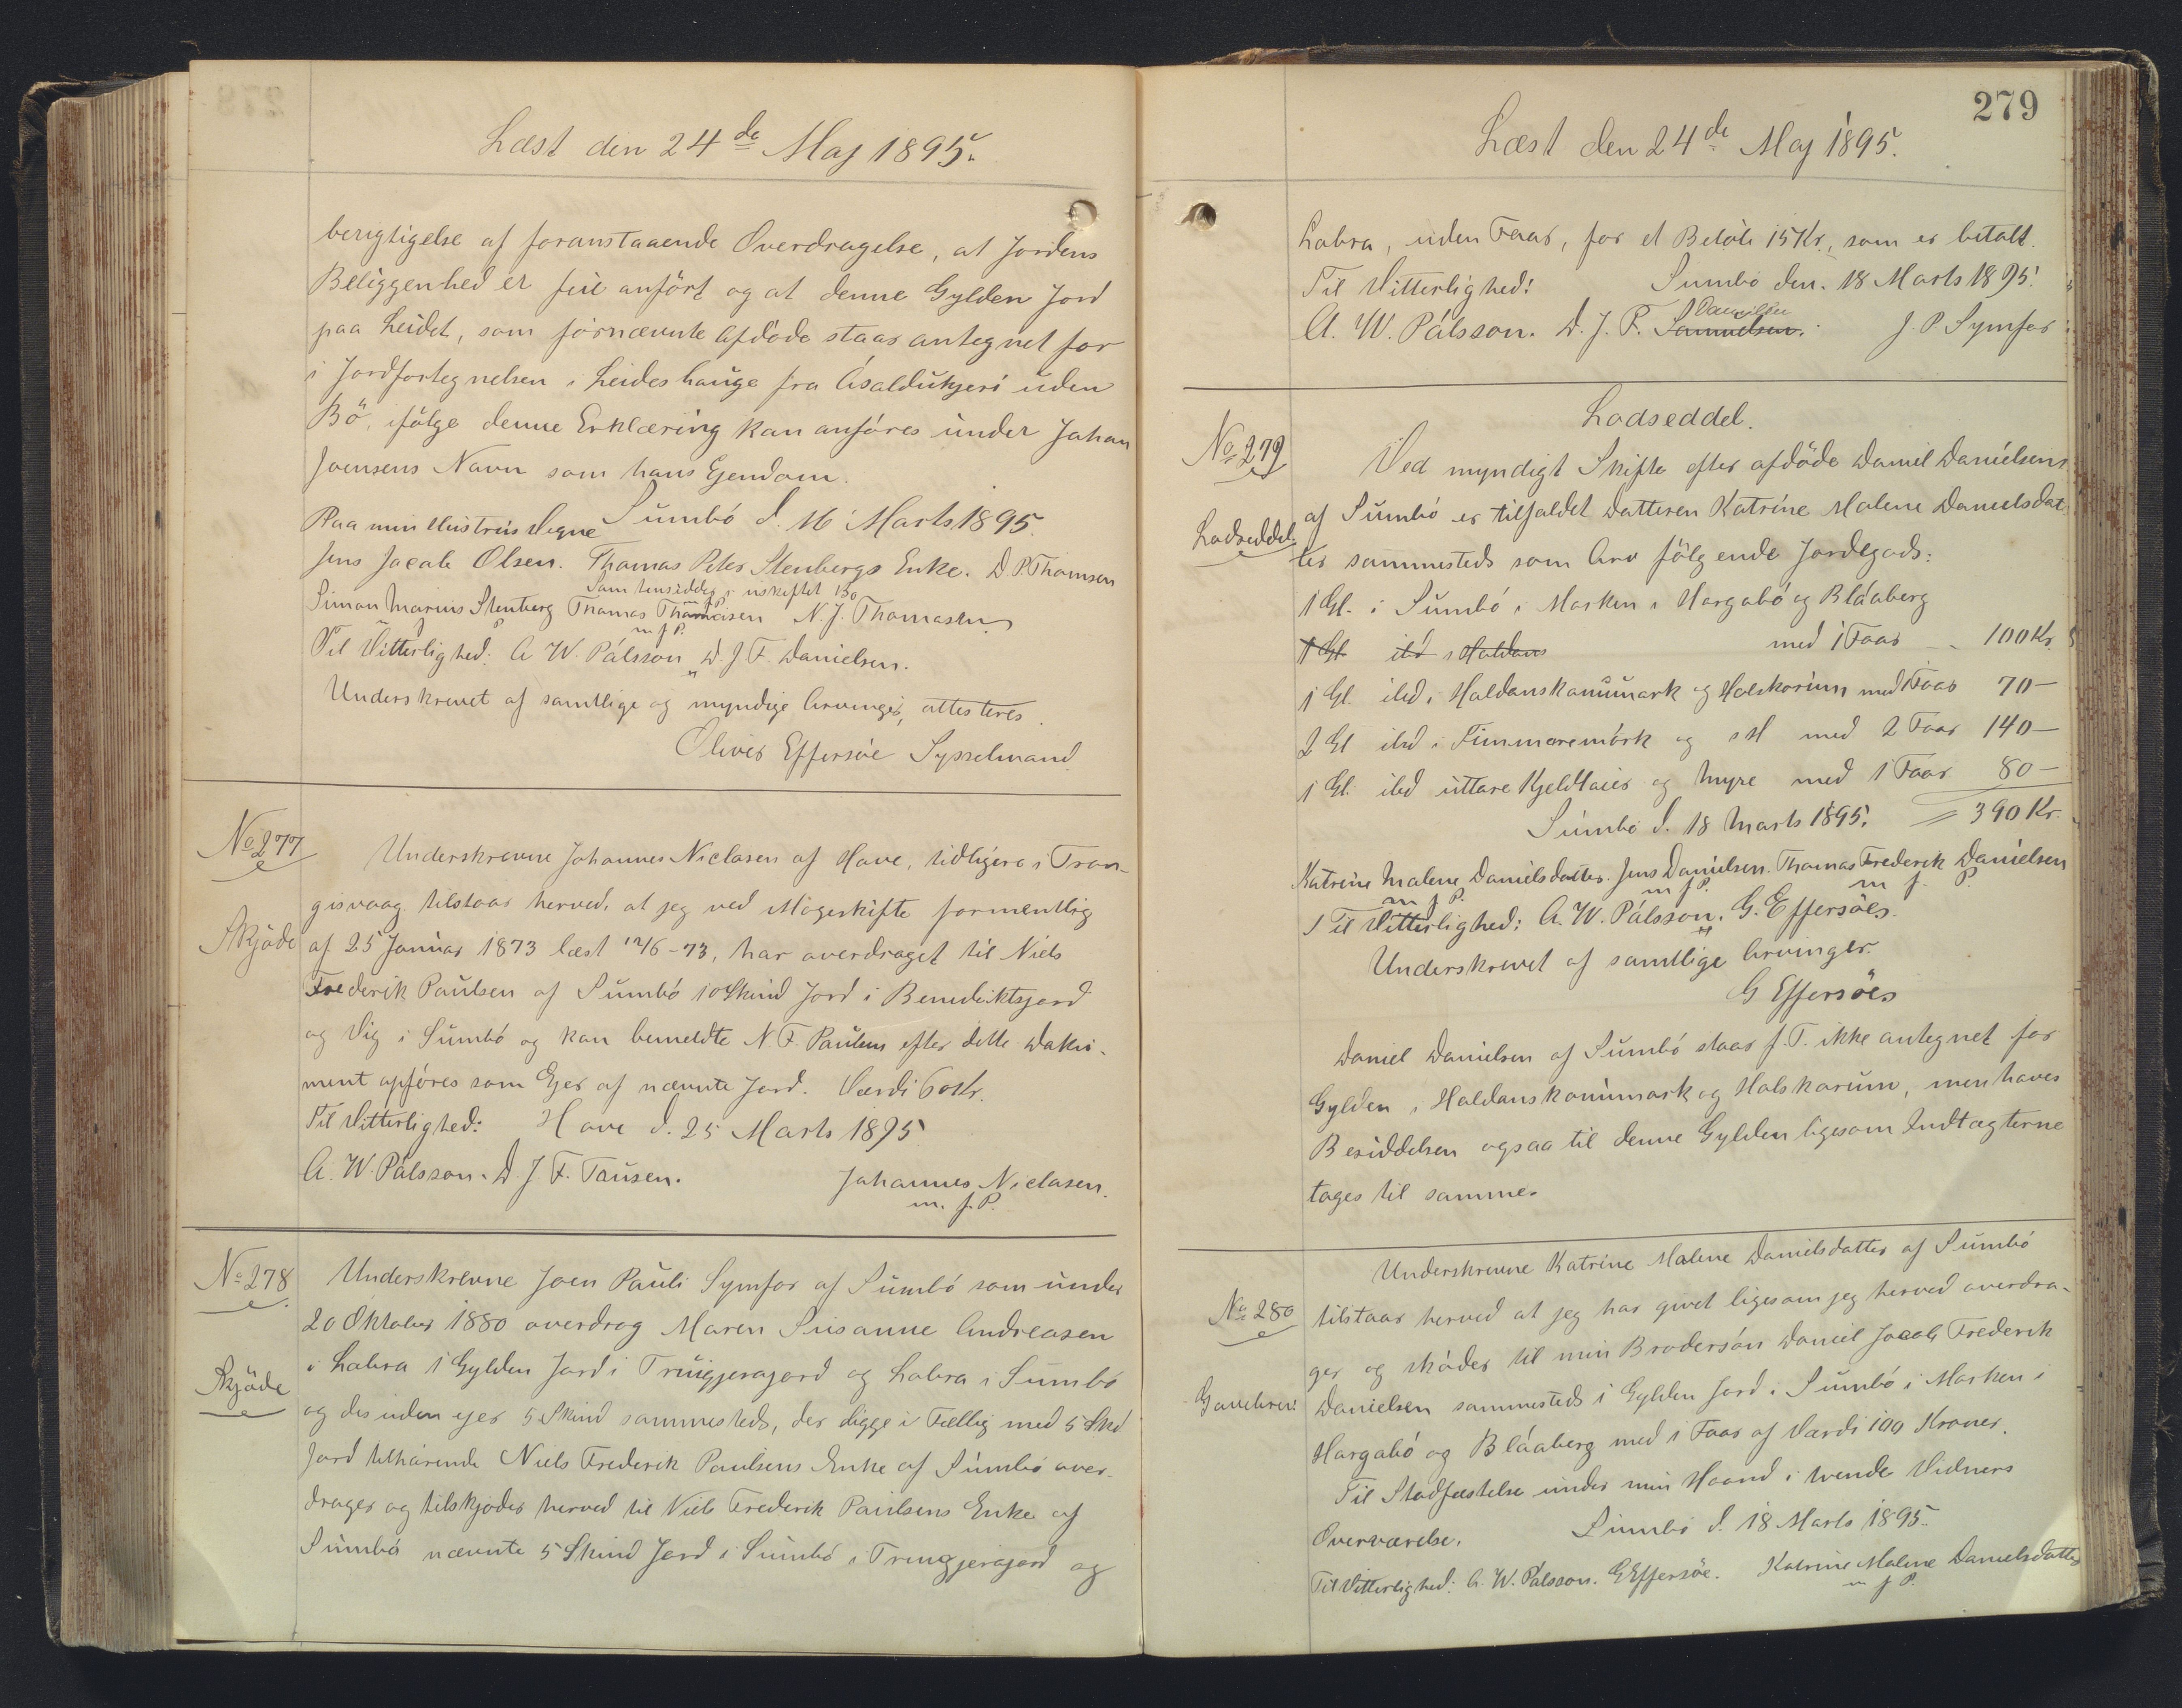 Læst den 24de Maj 1895.
berigtigelse af foranstaaende Overdragelse, at Jordens
Beliggenhed er feil anført og at denne Gylden Jord
paa Leidet, som førnævnte Afdøde staar antegnet for
i Jordfortegnelsen i Leides hauge fra
uden
Bö, ifølge denne Erklæring kan anføres under Johan
Joensens Navn som hans Ejendom.
Paa min Hustrus Vegne Sumbö d. 16 Marts 1895.
Jens Jacob Olsen. Thomas Peter Stenbergs Enke. D. P. Thomsen
Sam hensidder i uskiftet Bo
Simon Marius Stenberg Thomas Thomasen N. J. Thomasen
m f P.
Til Vitterlighed: A W. Pálsson D. J. F. Danielsen.
Underskrevet af samtlige og myndige Arvinger, attesteres.
Oliver Effersöe Sysselmand
No 277
Skjöde
Underskrevne Johannes Niclasen af Hove, tidligere i Tran-
gisvaag tilstaar herved, at jeg ved Mageskifte formentlig
af 25 Januar 1873 læst 12/6-73, har overdraget til Niels
Frederik Paulsen af Sumbö 10 Skind Jord i Benediktsjord
og Vig i Sumbö og kan bemeldte N. F. Paulsen efter dette Doku-
ment opføres som Ejer af nævnte Jord. Værdi 60 Kr.
Til Vitterlighed: Hove d. 25 Marts 1895
A. W. Pálsson. D. J. F. Tausen. Johannes Niclasen.
m. f. P.
No 278
Skjöde
Underskrevne Joen Pauli Symfor af Sumbö som under
20 Oktober 1880 overdrog Maren Susanne Andreasen
i Lobra 1 Gylden Jord i Truigjerajord og Lobra i Sumbö
og desuden ejer 5 Skind sammesteds, der ligge i Fællig med 5 Skd
Jord tilhörende Niels Frederik Paulsens Enke af Sumbö over-
drager og tilskjöder herved til Niels Frederik Paulsens Enke af
Sumbö nævnte 5 Skind Jord i Sumbö i Truigjerajord og
279
Læst den 24de Maj 1895.
Lobra, uden Faar, for et Beløb 15 Kr., som er betalt.
Til Vitterlighed! Sumbö den. 18 Marts 1895.
Danielsen
A. W. Pálsson. D. J. F. Samuelsen. J. P. Symfor
Lodseddel.
No 279
Lodseddel.
Ved myndigt Skifte efter afdöde Daniel Danielsens
af Sumbö er tilfaldet Datteren Katrine Malene Danielsdat
ter sammesteds som Arv fölgende Jordegods:
1 Gl. i Sumbö i Marken i Hargabö og Bláaberg
1 Gl. ibd i Haldans med 1 Faar 100 Kr.
1 Gl. ibd. i Haldanskonumark og Halskorum med 1 Faar 70 -
2 Gl ibd i Timmeremörk og med 2 Faar 140 -
1 Gl. ibd uttare Kjeldhaier og Myre med 1 Faar 80 -
Sumbö d. 18 Marts 1895. = 390 Kr.
Katrine Malene Danielsdatter. Jens Danielsen. Thomas Frederik Danielsen
m f P. m f P. m f. P.
Til Vitterlighed: A. W. Pálsson. G. Effersöes.
Underskrevet af samtlige Arvinger.
G Effersöes
Daniel Danielsen af Sumbö staar f. T. ikke antegnet for
Gylden i Haldanskonumark og Halskorum, men haves
Besiddelsen ogsaa til denne Gylden ligesom Indtægterne
tages til samme.
No 280
Gavebrev
Underskrevne Katrine Malene Danielsdatter af Sumbö
tilstaar herved at jeg har givet ligesom jeg herved overdra-
ger og skøder til min Brodersön Daniel Jacob Frederik
Danielsen sammesteds 1 Gylden Jord i Sumbö i Marken i
Hargabö og Bláaberg med 1 Faar af Værdi 100 Kroner.
Til Stadfæstelse under min Haand i tvende Vidners
Overværelse. Sumbö d. 18 Marts 1895.
Til Vitterlighed: A. W. Pálsson. G Effersöe. Katrine Malene Danielsdatter
m f P.